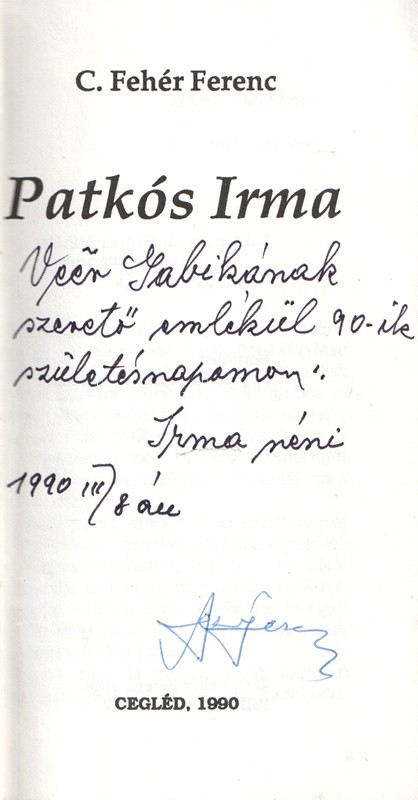 C. Fehér Ferenc
Patkós Irma
Veér Gabikának
szerető emlékül 90-ik
születésnapomon.
Irma néni
1990 III/8 án
CEGLÉD, 1990